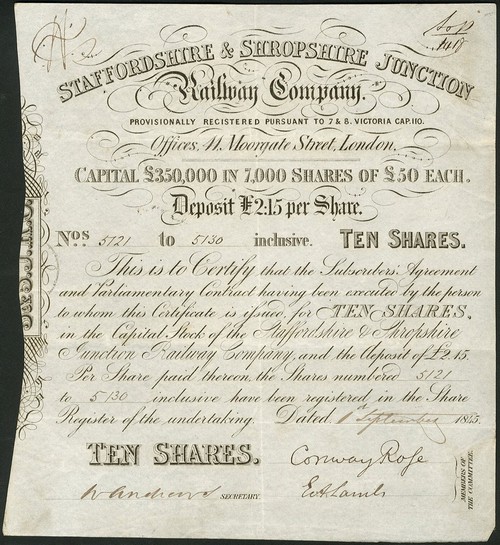 STAFFORDSHIRE & SHROPSHIRE JUNCTION
Railway Company.
PROVISIONALLY REGISTERED PURSUANT TO 7 & 8. VICTORIA CAP. 110.
Offices, 41, Moorgate Street, London.
CAPITAL £350,000 IN 7,000 SHARES OF £50 EACH.
Deposit £2:15 per Share.
Nos 5121 to 5130 inclusive. TEN SHARES.
This is to Certify that the Subscribers' Agreement
and Parliamentary Contract having been executed by the person
to whom this Certificate is issued, for TEN SHARES,
in the Capital Stock of the Staffordshire & Shropshire
Junction Railway Company, and the deposit of £2.15.
Per Share paid thereon, the Shares numbered 5121
to 5130 inclusive have been registered in the Share
Register of the undertaking. Dated 1st September 1845.
TEN SHARES.
Conway Rose
SECRETARY
MEMBERS OF
THE COMMITTEE.